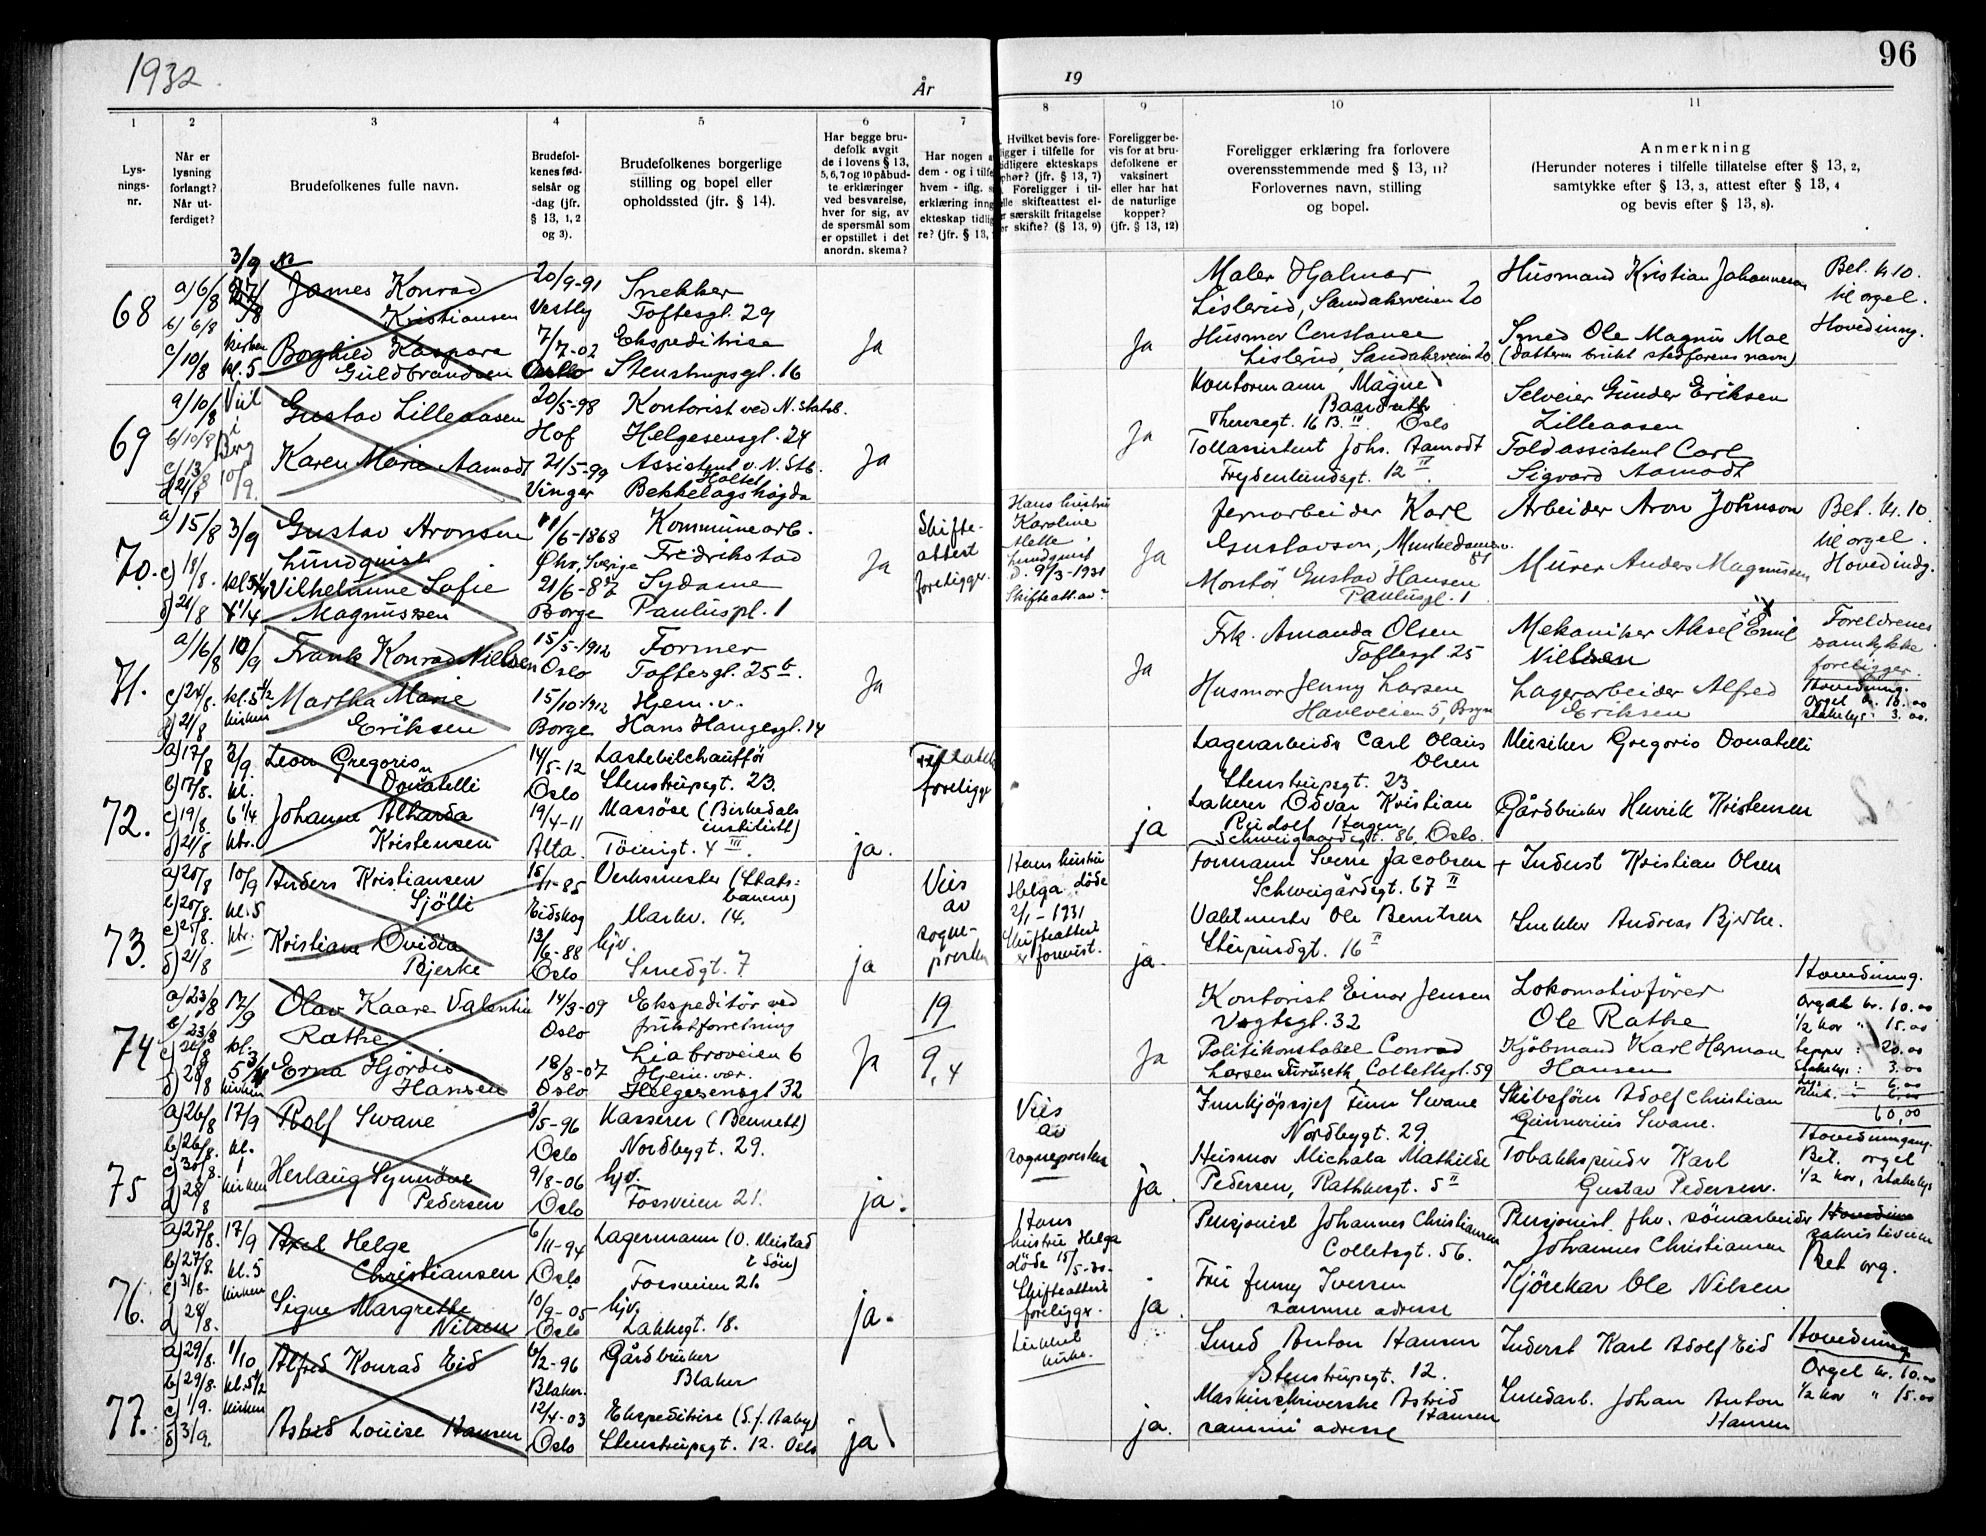 1932.
År
19
96
1
2
3
4
5
6
7
8
9
10
11
Lys-
nings-
nr.
Når er
lysning
forlangt?
Når ut-
ferdiget?
Brudefolkenes fulle navn.
Brudefol-
kenes fød-
selsår og
-dag (jfr.
§ 13, 1, 2
og 3).
Brudefolkenes borgerlige
stilling og bopel eller
opholdssted (jfr. § 14).
Har begge bru-
defolk avgit
de i lovens § 13,
5, 6, 7 og 10 påbud-
te erklæringer
ved besvarelse,
hver for sig, av
de spørsmål som
er opstillet i det
anordn. skema?
Har nogen
dem - og i
hvem - iflg.
erklæring
ekteskap
re? (jfr. § 13,
Hvilket bevis fore-
ligger i tilfelle for
tidligere ekteskaps
ophør? (jfr. § 13, 7)
Foreligger i til-
felle skifteattest el-
er særskilt fritagelse
er skifte? (§ 13, 9)
Foreligger be-
vis for at bru-
defolkene er
vaksinert
eller har hat
de naturlige
kopper?
(jfr. § 13, 12)
Foreligger erklæring fra forlovere
overensstemmende med § 13, 11?
Forlovernes navn, stilling
og bopel.
Anmerkning
(Herunder noteres i tilfelle tillatelse efter § 13, 2,
samtykke efter § 13, 3, attest efter § 13, 4
og bevis efter § 13, 8).
68
a) 6/8
b) 6/8
c) 10/8
3/9
kirken
kl. 5
James Konrad
Kristiansen
Borghild Kaspara
Guldbrandsen
20/9-91
Vestby
7/7-02
Oslo
Snekker
Toftesgt. 29
Ekspeditrise
Stenstrupsgt. 16
Ja
Ja
Maler Hjalmar
Lislerud, Sandakerveien 20
Husmor Constance
Lislerud, Sandakerveien 20
Husmand Kristian Johannesen
Smed Ole Magnus Moe
(datteren brukt stedfarens navn)
Bet. kr 10.
til orgel.
Hovedinng.
69
a) 10/8
b) 10/8
c) 13/8
d) 21/8
Viet
i
Berg
10/9.
Gustav Lilleaasen
Karen Marie Aamodt
20/5-98
Hof
21/5-99
Vinger
Kontorist ved N. Statsb.
Helgesensgt. 24
Assistent v. N. Stb.
Holtet
Bekkelagshøgda
Ja
Ja
Kontormann Magne
Theresegt. 16 B. III Oslo
Tollassistent Johs. Aamodt
Frydenlundsgt. 12 II
Selveier Gunder Eriksen
Lilleaasen
Toldassistent Carl
Sigvard Aamodt
70.
a) 15/8
c) 18/8.
d) 21/8
3/9
Gustav Aronsen
Lundquist
Vilhelmine Sofie
Magnussen
11/6-1868
Sverige
21/6-87
Borge
Kommunearb.
Fredrikstad
Sydame
Pauluspl. 1
Ja
Skifte-
attest
foreligger.
Hans hustru
Karoline
Mette
Lundquist
d. 9/3-1931
Skifteatt. av?
Ja
Jernarbeider Karl
Gustavson, Munkedamsv.
Montør Gustav Hansen
Pauluspl. 1
Arbeider Aron Johnson
Murer Anders Magnussen
Bet. kr. 10.
til orgel.
Hovedindg.
71.
a) 16/8
c) 24/8.
d) 21/8
10/9
kl. 5 1/2
kirken
Frank Konrad Nielsen
Martha Marie
Eriksen
15/5-1912
Oslo
15/10-1912
Borge
Former
Toftesgt. 25 b.
Hjem. v.
Hans Haugesgt. 14
Ja
Ja
Frk. Amanda Olsen
Toftesgt. 25
Husmor Jenny Larsen
Havlveien 5, Bryn
Mekaniker Aksel Emil
Nielsen
Lagerarbeider Alfred
Eriksen
Foreldrenes
samtykke
foreligger.
Hovedinng.
Orgel k. 10.00
Stakelys 3.00.
72.
a) 17/8
b) 17/8.
c) 19/8.
d) 21/8
3/9.
kl.
6 1/4
ktr.
Leon Gregorio
Donatelli
Johanne Alharda
Kristensen
14/5-12
Oslo
19/4-11
Alta.
Lastebilchauffør
Stenstrupsgt. 23.
Massøse (Birkedals
institutt)
Tøiengt. 4 III.
ja.
foreligge
ja
Lagerarbeider Carl Olaus
Olsen
Stenstrupsgt. 23
Lakerer Odvar Kristian
Rudolf Hagen
Schweigaardsgt. 86, Oslo.
Musiker Gregorio Donatelli
Gårdbruker Henrik Kristensen
73.
a) 20/8
b) 20/8.
c) 25/8.
d) 21/8
10/9
kl. 5
ktr.
Anders Kristiansen
Sjølli
Kristiane Ovidia
Bjerke
15/1-85
Eidskog
13/6-88
Oslo
Verksmester (Stats-
banene)
Markv. 14.
hjv.
Smedgt. 7
ja
Vies
av
sogne-
presten
Hans hustru
Helga døde
2/1-1931
Skifteattest
er forevist.
ja.
Formann Sverre Jacobsen
Schweigårdsgt. 67 II
Vaktmester Ole Berntsen
Steinpindgt. 16 II
+ Inderst Kristian Olsen
Snekker Andreas Bjerke.
74
a) 23/8
b) 23/8
c) 26/8
d) 28/8
17/9
kl.
kirken
Olav Kaare Valentin
Rathe
Erna Hjördis
Hansen
14/3-09
Oslo
18/8-07
Oslo
Ekspeditör ved
fruktforretning
Liabroveien 6
Hjem. vær.
Helgesensgt 32
Ja
19
9,4
Ja
Kontorist Einar Jensen
Vogtsgt. 32
Politikonstabel Conrad
Larsen Furuseth Collettsgt. 59
Lokomotivfører
Ole Rathe
Kjöbmand Karl Herman
Hansen
Hovedinng.
Orgel kr. 10.00
1/2 kor " 15.00
tepper : 20.00
Stakelys : 3.00
6.00
60,00
75
a) 26/8
b) 26/8.
c) 30/8.
d) 28/8
17/9
kl.
1
kirken
Rolf Svane
Herlaug Synnöve
Pedersen
3/5-96
Oslo
9/8-06
Oslo
Kasserer (Bennett)
Nordbygt. 29.
hjv.
Fossveien 21.
ja.
Vies
av
sognepresten
ja.
Innkjøpssjef Finn Svane
Nordbygt. 29.
Husmor Michala Mathilde
Pedersen, Rathkesgt. 5 II
Skibsfører Adolf Christian
Gunnerius Svane.
Tobakkspinder Karl
Gustav Pedersen.
Hovedinngang.
Bet. orgel
1/2 kor, stakelys
76.
a) 27/8.
b) 27/8.
c) 31/8.
d) 28/8.
17/9
kl. 5
kirken
Axel Helge
Christiansen
Signe Margrethe
Nilsen
6/11-94
Oslo
10/9-05
Oslo
Lagermann (O. Meistad
& Søn)
Fossveien 21.
hjv.
Lakkegt. 18.
ja.
Hans
hustru Helga
døde 15/5-30.
Skifteattest
foreligger.
ja.
Pensjonist Johannes Christiansen
Colletsgt. 56.
Fru Jenny Iversen
samme adresse
Pensjonist. fhv. sömarbeider
Johannes Christiansen
Kjörekar Ole Nilsen
sakristiveien
Bet org.
77.
a) 29/8.
b) 29/8.
c) 1/9.
d) 3/9.
1/10
kl. 5 1/2
kirken
Alfred Konrad Eid
Astrid Louise Hansen
6/2-96
Blaker.
12/4-03
Oslo
Gårdbruker
Blaker
Ekspeditrise (S. f. Aaby)
Stenstrupsgt. 12. Oslo
ja
kirke.
ja.
Smed Anton Hansen
Stenstrupsgt. 12.
Maskinskriverske Astrid
Hansen
samme adresse
Inderst Karl Adolf Eid
Smedarb. Johan Anton
Hansen
Hovedinng
Orgel kr. 10.00
1/2 kor " 15.00